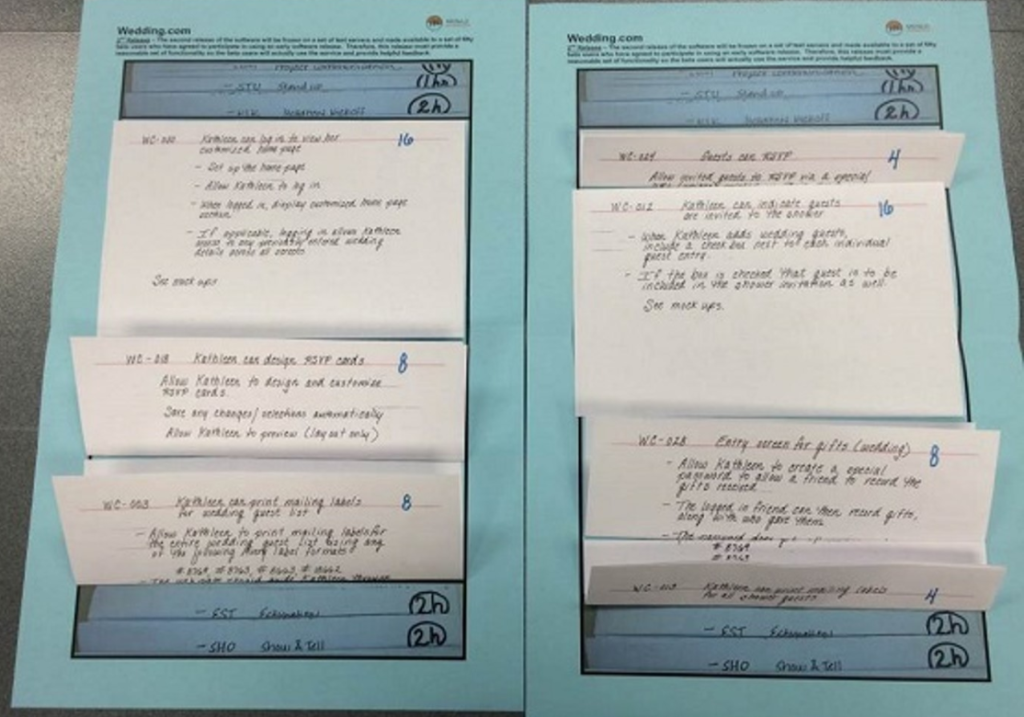 Wedding.com
2nd Release – The second release of the software will be frozen on a set of test servers and made available to a set of fifty
beta users who have agreed to participate in using an early software release. Therefore, this release must provide a
reasonable set of functionality so the beta users will actually use the service and provide helpful feedback.
(1hr)
- STU Stand up
(2h)
WC-010 Kathleen can log in to view her 16
customized home page
- Set up the home page
- Allow Kathleen to log in
- When logged in, display customized home page
section
- If applicable, logging in allow Kathleen
access to any previously entered wedding
details across all screens
See mock ups
WC-018 Kathleen can design RSVP cards 8
Allow Kathleen to design and customize
RSVP cards.
Save any changes/selections automatically
Allow Kathleen to preview (layout only)
WC-003 Kathleen can print mailing labels 8
for wedding guest list
- Allow Kathleen to print mailing labels for
the entire wedding guest list using any
of the following Avery label formats:
- EST Estimation (2h)
- SHO Show & Tell (2h)
Wedding.com
2nd Release – The second release of the software will be frozen on a set of test servers and made available to a set of fifty
beta users who have agreed to participate in using an early software release. Therefore, this release must provide a
reasonable set of functionality so the beta users will actually use the service and provide helpful feedback.
(1hr)
- STU Stand up
(2h)
Guests can RSVP 4
Allow invited guests to RSVP via a special
WC-012 Kathleen can indicate guests 16
are invited to the shower
- When Kathleen adds wedding guests,
include a check box next to each individual
guest entry.
- If the box is checked that guest is to be
included in the shower invitation as well.
See mock ups.
WC-028 Entry screen for gifts (wedding) 8
- Allow Kathleen to create a special
password to allow a friend to record the
gifts received
- The logged in friend can then record gifts,
along with who gave them
Kathleen can print mailing labels 4
for all shower guests
- EST Estimation (2h)
- SHO Show & Tell (2h)